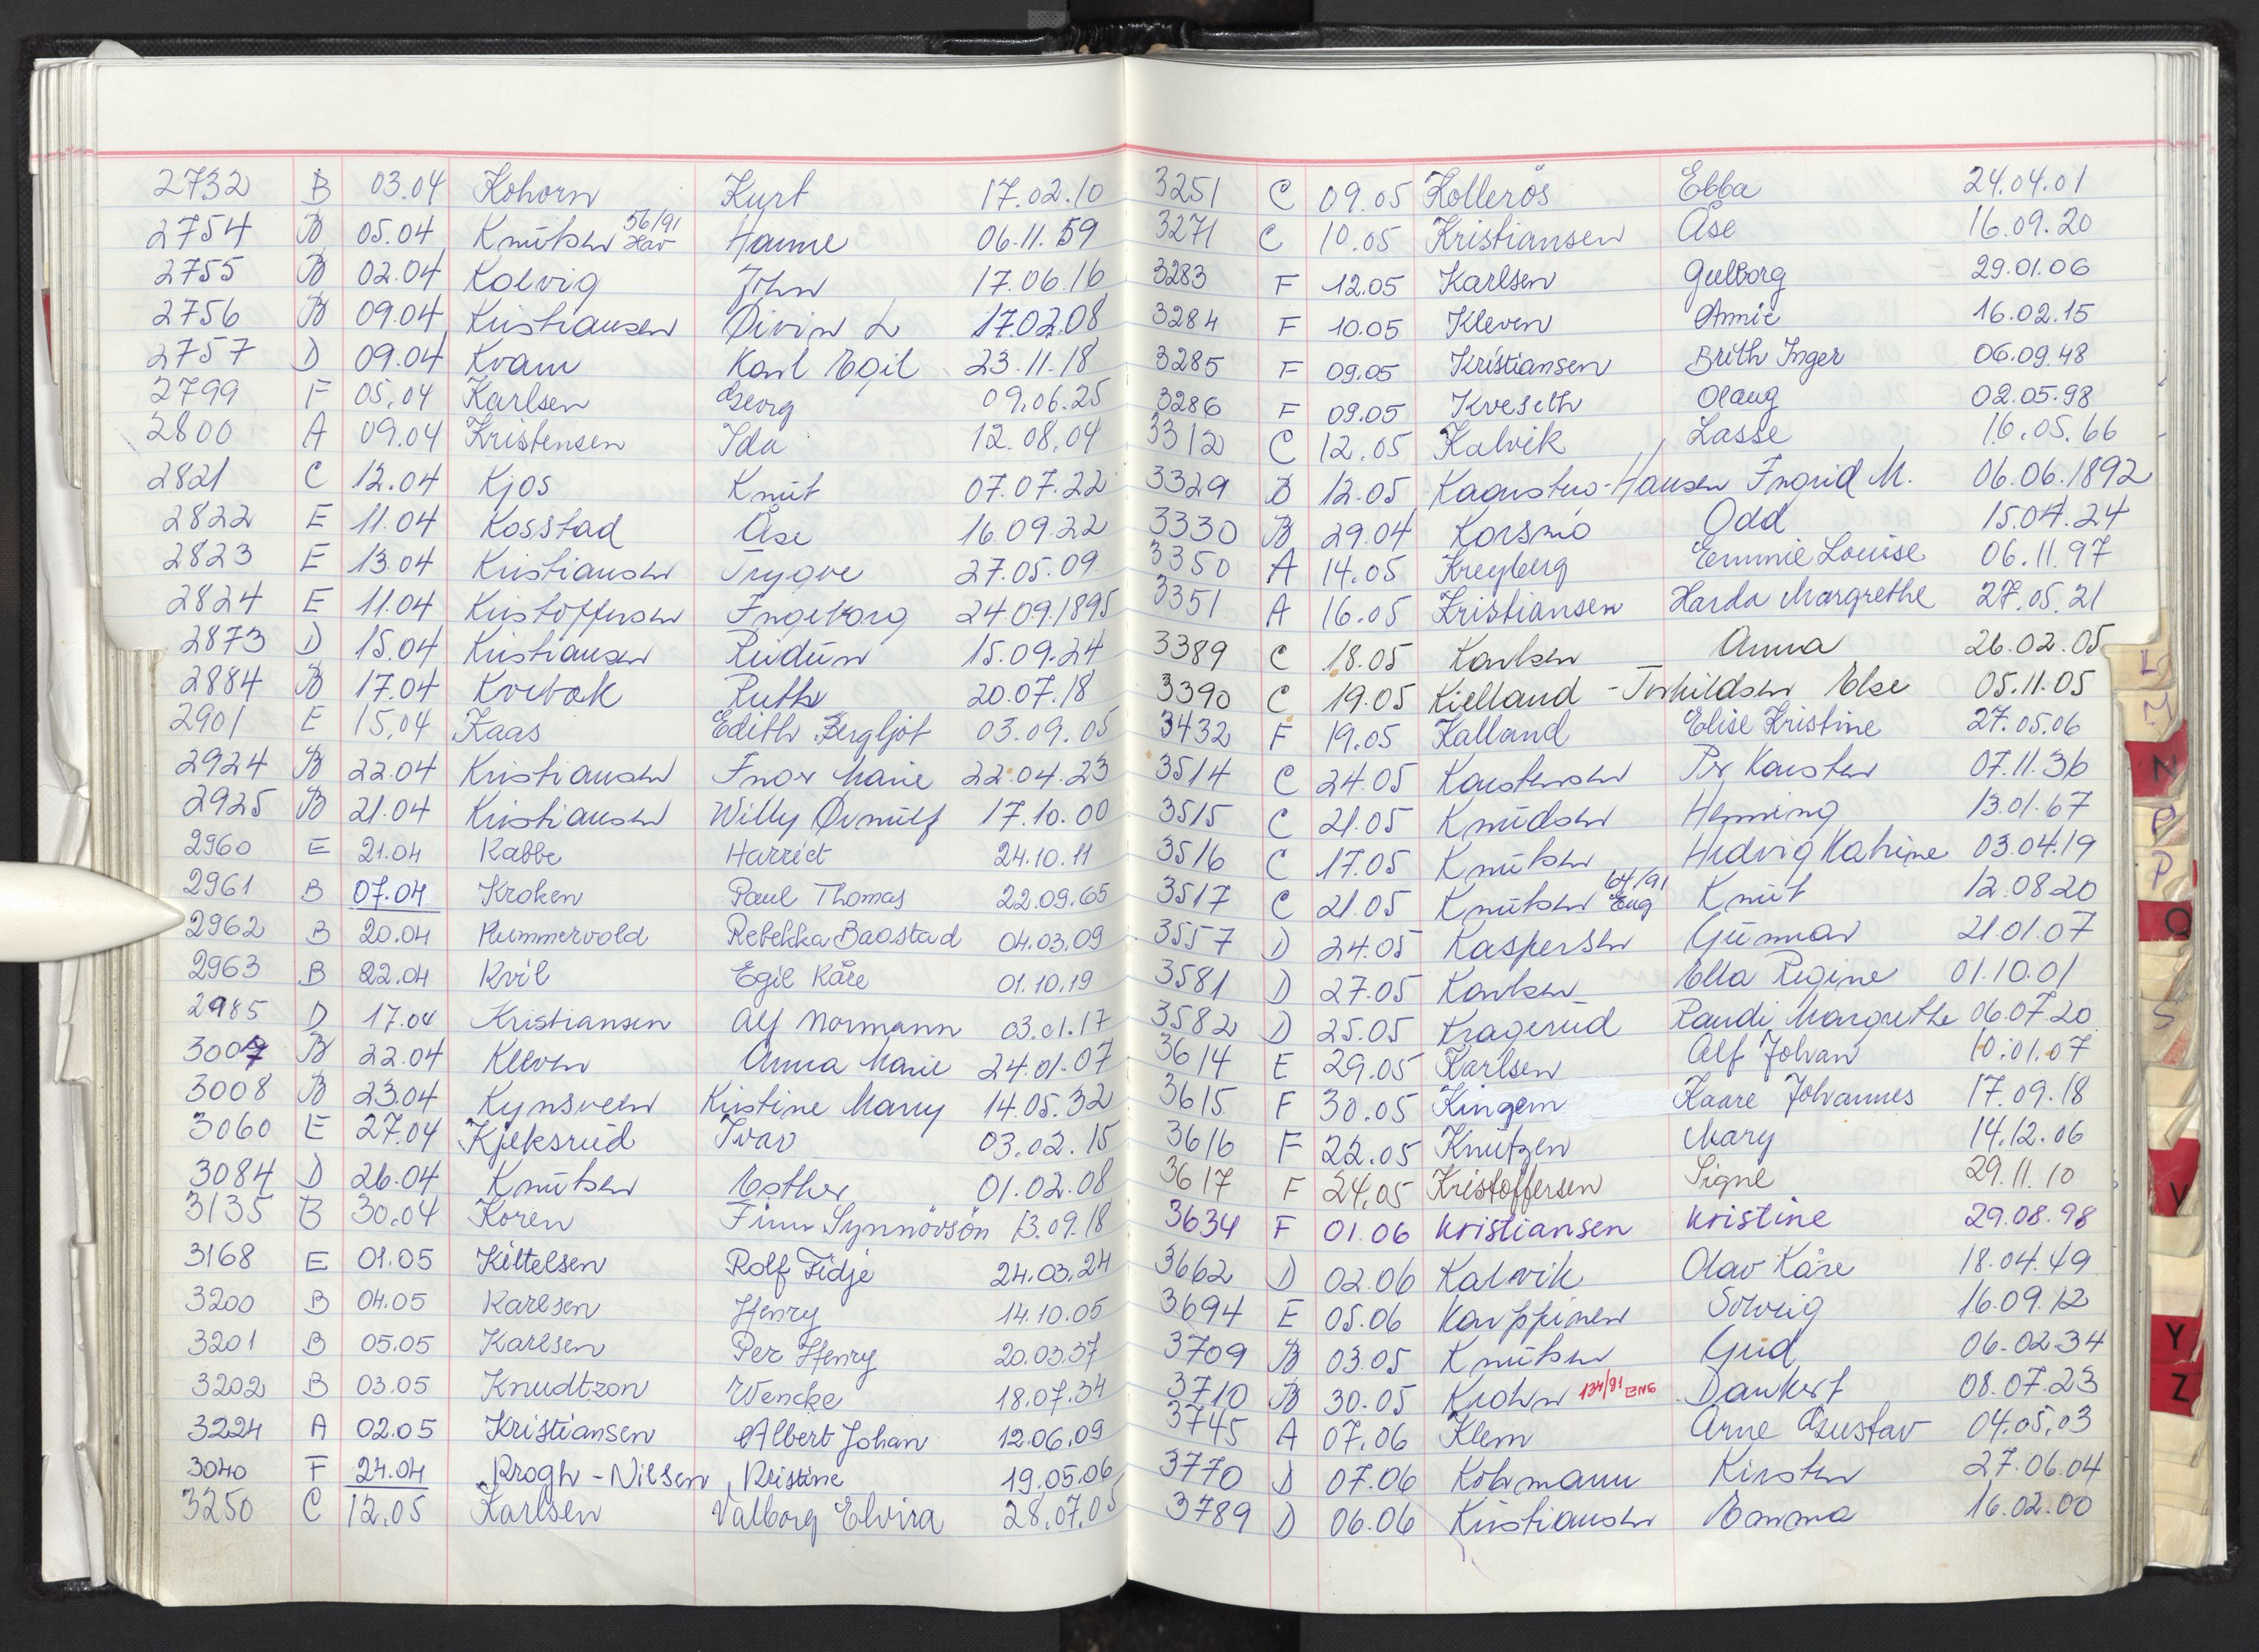 2732 B 03.04 Kohorn Kurt 17.02.10
2754 B 05.04 Knutsen 56/91 Hav Hanne 06.11.59
2755 B 02.04 Kolvig John 17.06.16
2756 B 09.04 Kristiansen Øivin L 17.02.08
2757 D 09.04 Kvam Karl Egil 23.11.18
2799 F 05.04 Karlsen Georg 09.06.25
2800 A 09.04 Kristensen Ida 12.08.04
2821 C 12.04 Kjos Knut 07.07.22
2822 E 11.04 Kosstad Åse 16.09.22
2823 E 13.04 Kristiansen Trygve 27.05.09
2824 E 11.04 Kristoffersen Ingeborg 24.09.1895
2873 D 15.04 Kristiansen Reidun 15.09.24
2884 B 17.04 Kvebæk Ruth 20.07.18
2901 E 15.04 Kaas Edith Bergljot 03.09.05
2924 B 22.04 Kristiansen Inor Marie 22.04.23
2925 B 21.04 Kristiansen Willy Ørnulf 17.10.00
2960 E 21.04 Kabbe Harriet 24.10.11
2961 B 07.04 Kroken Paul Thomas 22.09.65
2962 B 20.04 Kummervold Rebekka Baostad 04.03.09
2963 B 22.04 Kvil Egil Kåre 01.10.19
2985 D 17.04 Kristiansen Alf Normann 03.01.17
3007 B 22.04 Kleven Anna Marie 24.01.07
3008 B 23.04 Kynsveen Kristine Marry 14.05.32
3060 E 27.04 Kjeksrud Ivar 03.02.15
3084 D 26.04 Knutsen Esther 01.02.08
3135 B 30.04 Koren Finn Synnövsön 13.09.18
3168 E 01.05 Kittelsen Rolf Fidje 24.03.24
3200 B 04.05 Karlsen Henry 14.10.05
3201 B 05.05 Karlsen Per Henry 20.03.37
3202 B 03.05 Knudtzon Wencke 18.07.34
3224 A 02.05 Kristiansen Albert Johan 12.06.09
3040 F 24.04 Krogh-Nilsen, Kristine 19.05.06
3250 C 12.05 Karlsen Valborg Elvira 28.07.05
3251 C 09.05 Kollerös Ebba 24.04.01
3271 C 10.05 Kristiansen Åse 16.09.20
3283 F 12.05 Karlsen Gulborg 29.01.06
3284 F 10.05 Kleven Annie 16.02.15
3285 F 09.05 Kristiansen Brith Inger 06.09.48
3286 F 09.05 Kveseth Olaug 02.05.98
3312 C 12.05 Kalvik Lasse 16.05.66
3329 B 12.05 Kaarstuo-Hansen Ingrid M. 06.06.1892
3330 B 29.04 Korsmo Odd 15.04.24
3350 A 14.05 Kreyberg Emmie Louise 06.11.97
3351 A 16.05 Kristiansen Harda Margrethe 27.05.21
3389 C 18.05 Karlsen Anna 26.02.05
3390 C 19.05 Kielland-Torkildsen Else 05.11.05
3432 F 19.05 Kalland Elise Kristine 27.05.06
3514 C 24.05 Karstensen Per Karsten 07.11.36
3515 C 21.05 Knudsen Henning 13.01.67
3516 C 17.05 Knutsen Hedvig Katrine 03.04.19
3517 C 21.05 Knutsen 64/91 Eug Knut 12.08.20
3557 D 24.05 Kaspersen Gunnar 21.01.07
3581 D 27.05 Karlsen Ella Regine 01.10.01
3582 D 25.05 Kragerud Randi Margrethe 06.07.20
3614 E 29.05 Karlsen Alf Johan 10.01.07
3615 F 30.05 Kingem Kaare Johannes 17.09.18
3616 F 22.05 Knutzen Mary 14.12.06
3617 F 24.05 Kristoffersen Signe 29.11.10
3634 F 01.06 Kristiansen Kristine 29.08.98
3662 D 02.06 Kalvik Olav Kåre 18.04.49
3694 E 05.06 Karppinen Solveig 16.09.12
3709 B 03.05 Knutsen Grid 06.02.34
3710 B 30.05 Krohn 134/91 ENG Dankert 08.07.23
3745 A 07.06 Klem Arne Gustav 04.05.03
3770 D 07.06 Kohmann Kirsten 27.06.04
3789 D 06.06 Kristiansen Emma 16.02.00
L
N
P
Q
S
V
Y
Z